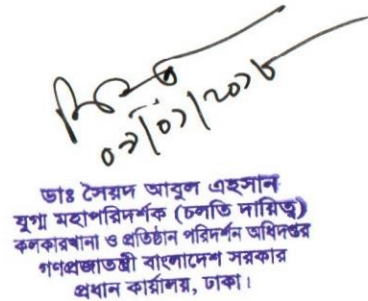 ০১/০১/২০১৮
ডাঃ সৈয়দ আবুল এহসান
যুগ্ম মহাপরিদর্শক (চলতি দায়িত্ব)
কলকারখানা ও প্রতিষ্ঠান পরিদর্শন অধিদপ্তর
গণপ্রজাতন্ত্রী বাংলাদেশ সরকার
প্রধান কার্যালয়, ঢাকা।